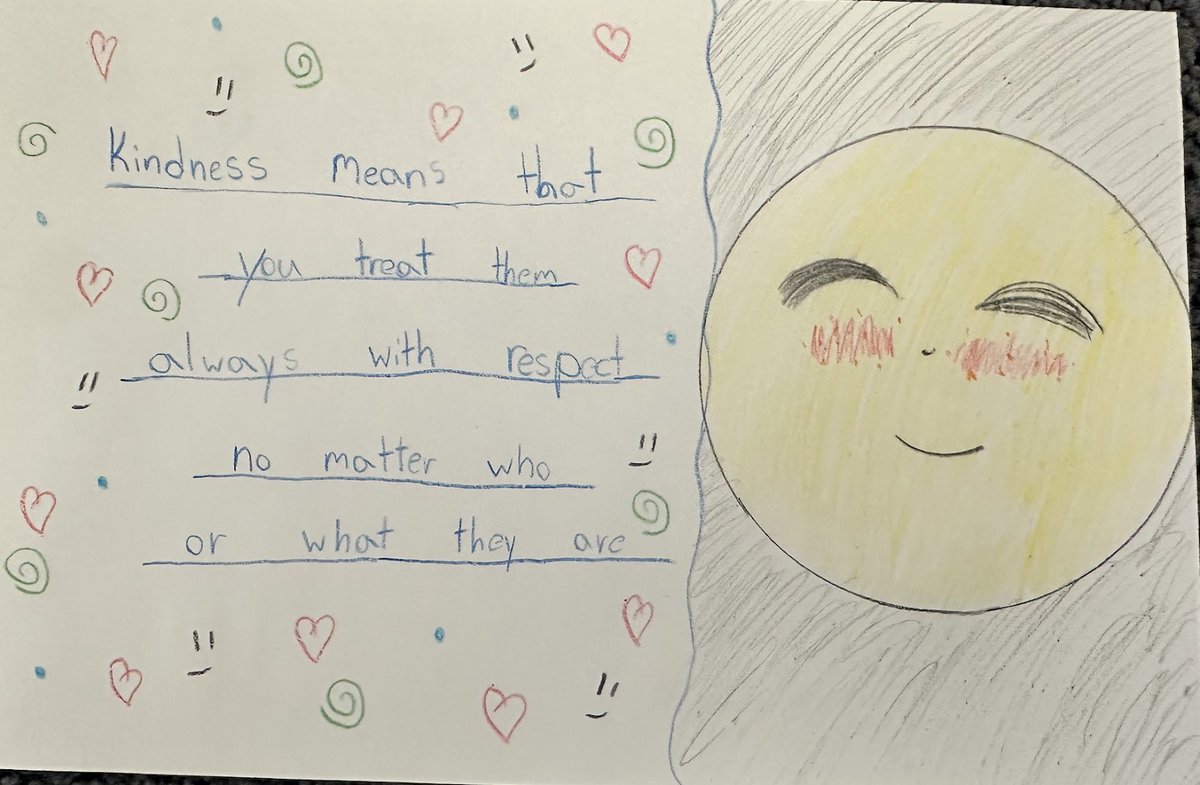 Kindness means that
you treat them
always with respect
no matter who
or what they are